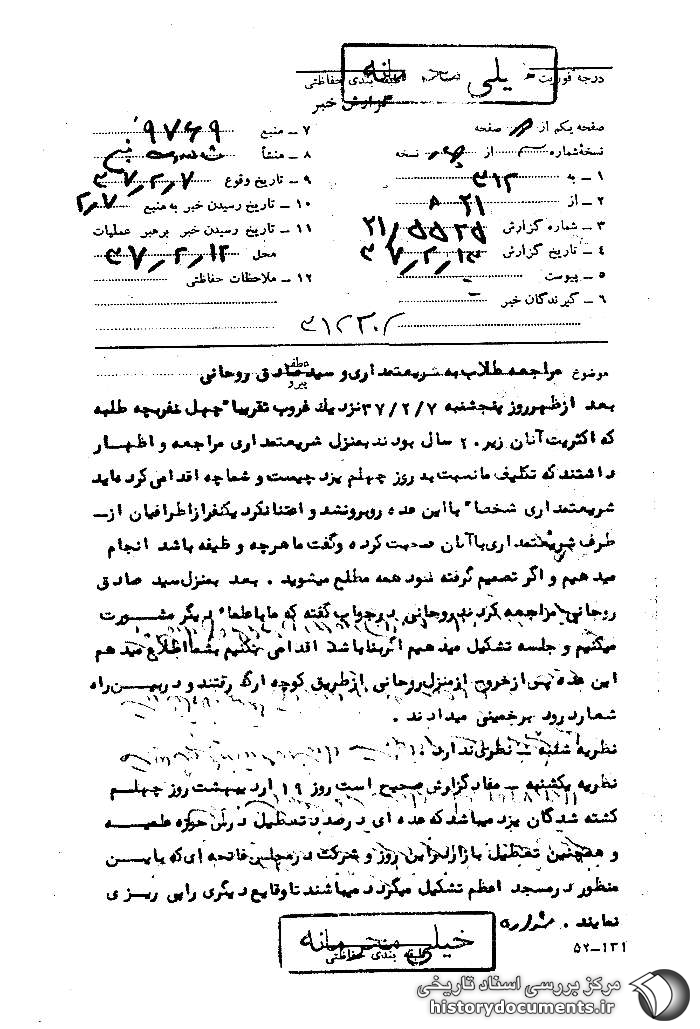 خیلی محرمانه
درجه فوریت
طبقه بندی حفاظتی
گزارش خبر
صفحه یکم از صفحه
نسخهٔ شماره از نسخه
۱ ــ به ۳۱۲
۲ ــ از ۲۱
۳ ــ شماره گزارش
۴ ــ تاریخ گزارش
۵ ــ پیوست
۶ ــ گیرندگان خبر
۷ ــ منبع ۹۷۶۹
۸ ــ منشأ
۹ ــ تاریخ وقوع ۳۷/۲/۷
۱۰ ــ تاریخ رسیدن خبر به منبع ۲/۷
۱۱ ــ تاریخ رسیدن خبر برهبر عملیات
محل ۳۷/۲/۱۲
۱۲ ــ ملاحظات حفاظتی
موضوع مراجعه طلاب به شریعتمداری و سید صادق روحانی
عطف
پیرو
بعد ازظهر روز پنجشنبه ۳۷/۲/۷ نزدیك غروب تقریبا" چهل نفر بچه طلبه
که اکثریت آنان زیر ۲۰ سال بودند بمنزل شریعتمداری مراجعه و اظهار
داشتند که تکلیف ما نسبت به روز چهلم یزد چیست و شما چه اقدامی کرده اید
شریعتمداری شخصا" با این عده روبرو نشد و اعتنا نکرد یکنفر از اطرافیان از ــ
طرف شریعتمداری با آنان صحبت کرده و گفت ما هرچه وظیفه باشد انجام
میدهیم و اگر تصمیم گرفته شود همه مطلع میشوید . بعد بمنزل سید صادق
روحانی مراجعه کردند روحانی در جواب گفته که ما با علماء دیگر مشورت
میکنیم و جلسه تشکیل میدهیم اگر بنا باشد اقدامی بکنیم بشما اطلاع میدهم
این عده پس از خروج از منزل روحانی از طریق کوچه ارك رفتند و در بین راه
شعار درود بر خمینی میدادند .
نظریه شنبه ــ نظری ندارد .
نظریه یکشنبه ــ مفاد گزارش صحیح است روز ۱۹ اردیبهشت روز چهلم
کشته شدگان یزد میباشد که عده ای در صدد تعطیل درس حوزه علمیه
و همچنین تعطیل بازار در این روز و شرکت در مجلس فاتحه ای که باین
منظور در مسجد اعظم تشکیل میگردد میباشند تا وقایع دیگری را پی ریزی
نمایند .
خیلی محرمانه
طبقه بندی حفاظتی
۵۲-۱۳۱
مرکز بررسی اسناد تاریخی
historydocuments.ir